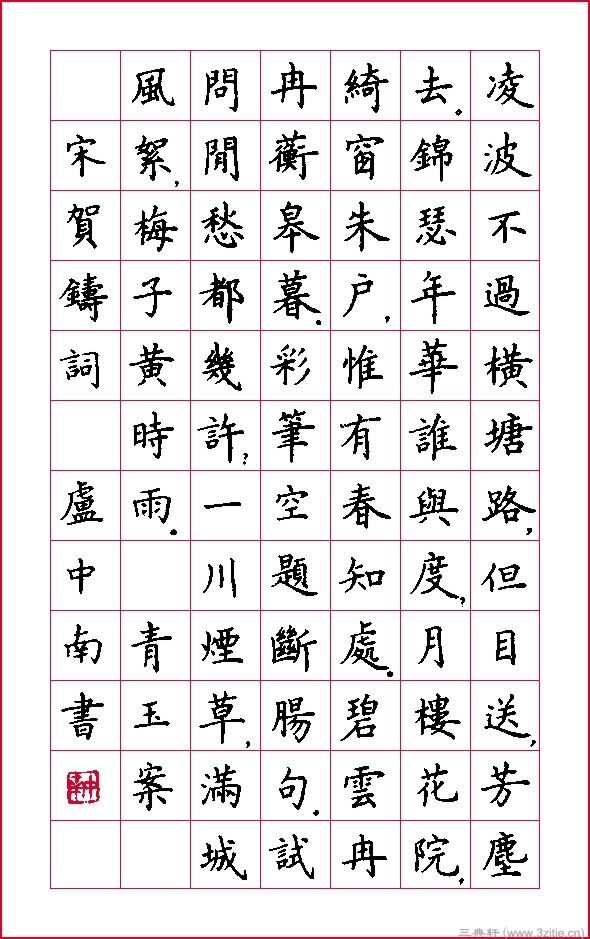 凌波不過橫塘路,但目送,芳塵
去。錦瑟年華誰與度,月樓花院,
綺窗朱户,惟有春知處。碧雲冉
冉蘅皋暮。彩筆空題斷腸句。試
問閒愁都幾許?一川煙草,滿城
風絮,梅子黃時雨。 青玉案
宋賀鑄詞 盧中南書
三典轩(www.3zitie.cn)